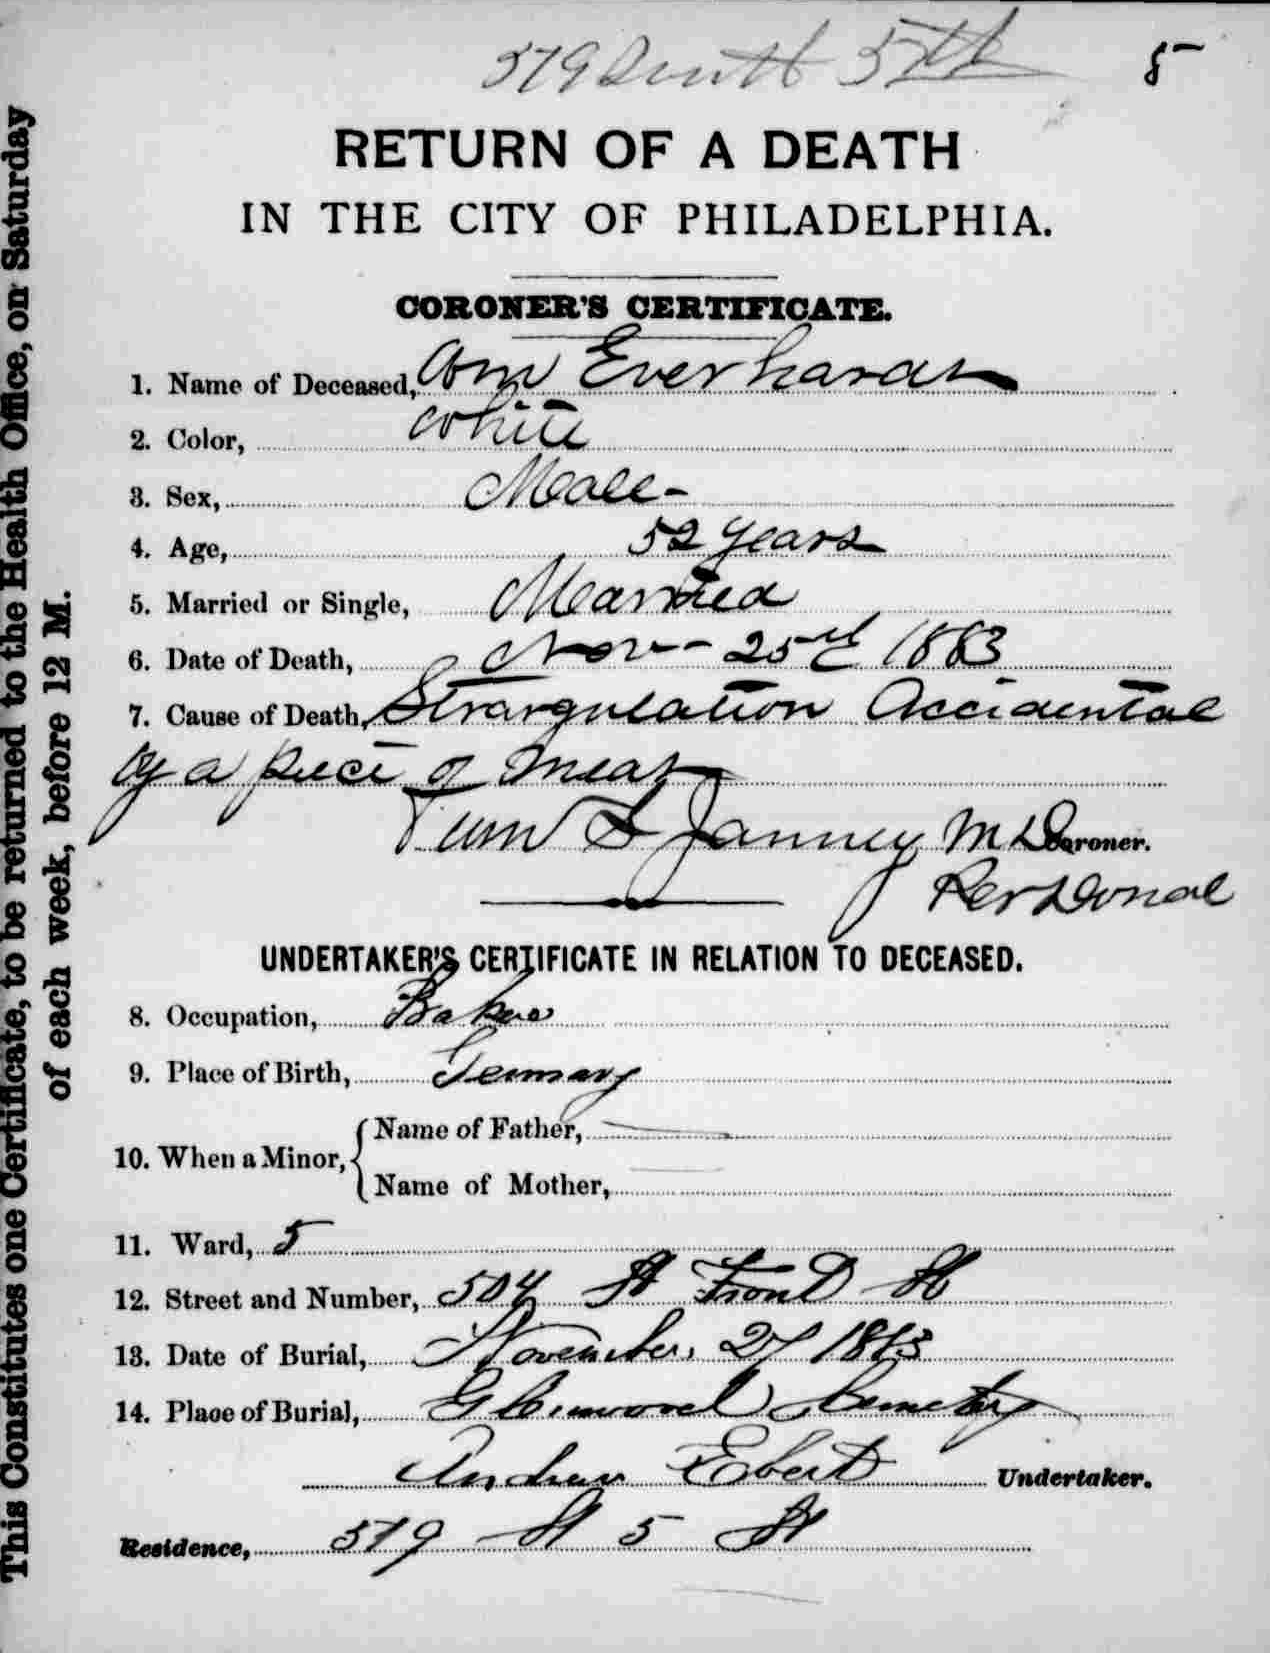 579 South 5th 5
RETURN OF A DEATH
IN THE CITY OF PHILADELPHIA.
CORONER'S CERTIFICATE.
1. Name of Deceased, Wm Everhardt
2. Color, White
3. Sex, Male
4. Age, 52 years
5. Married or Single, Married
6. Date of Death, Nov 25th 1883
7. Cause of Death, Strangulation Accidental
by a piece of meat
Wm S Janney M D Coroner.
Personal
UNDERTAKER'S CERTIFICATE IN RELATION TO DECEASED.
8. Occupation, Baker
9. Place of Birth, Germany
10. When a Minor, { Name of Father,
Name of Mother,
11. Ward, 5
12. Street and Number, 504 St Front St
13. Date of Burial, November 27 1883
14. Place of Burial, Glenwood Cemetery
Andrew Ebert Undertaker.
Residence, 579 St 5 St
This Constitutes one Certificate, to be returned to the Health Office, on Saturday
of each week, before 12 M.